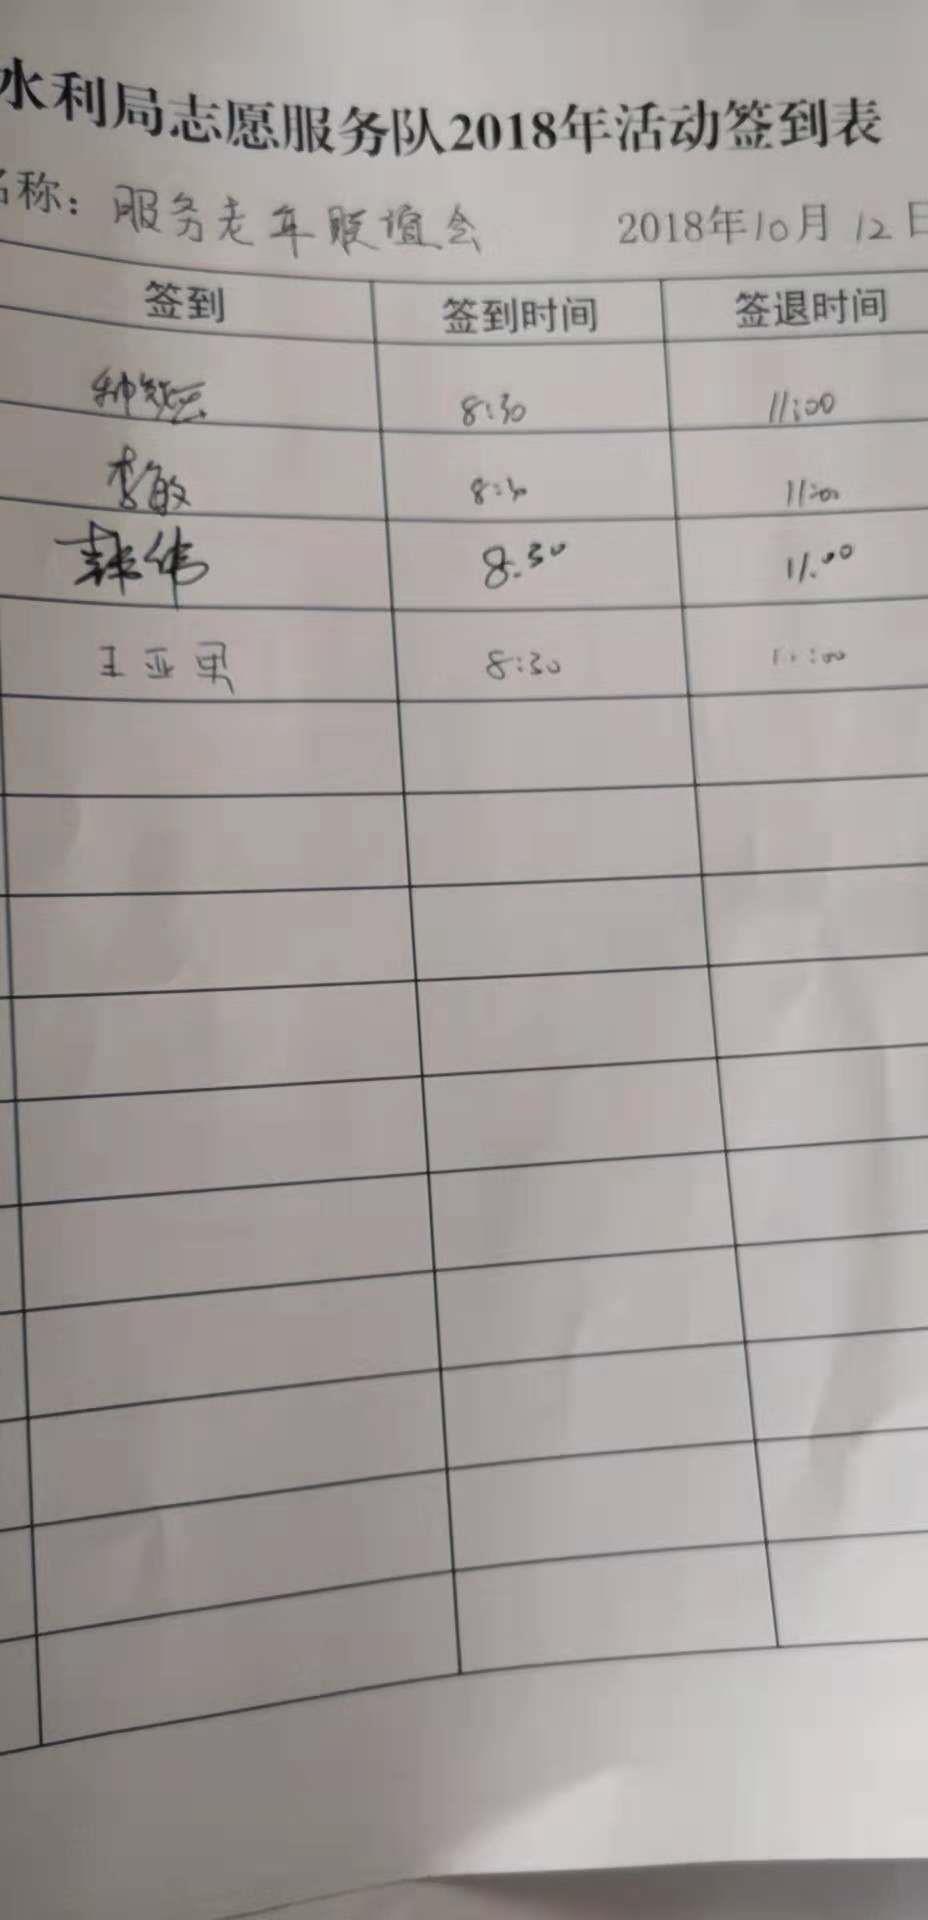 水利局志愿服务队2018年活动签到表
名称：服务老年联谊会 2018年10月12日
签到 签到时间 签退时间
8:30 11:00
李敏 8:30 11:00
韩伟 8.30 11.00
王亚男 8:30 11:00